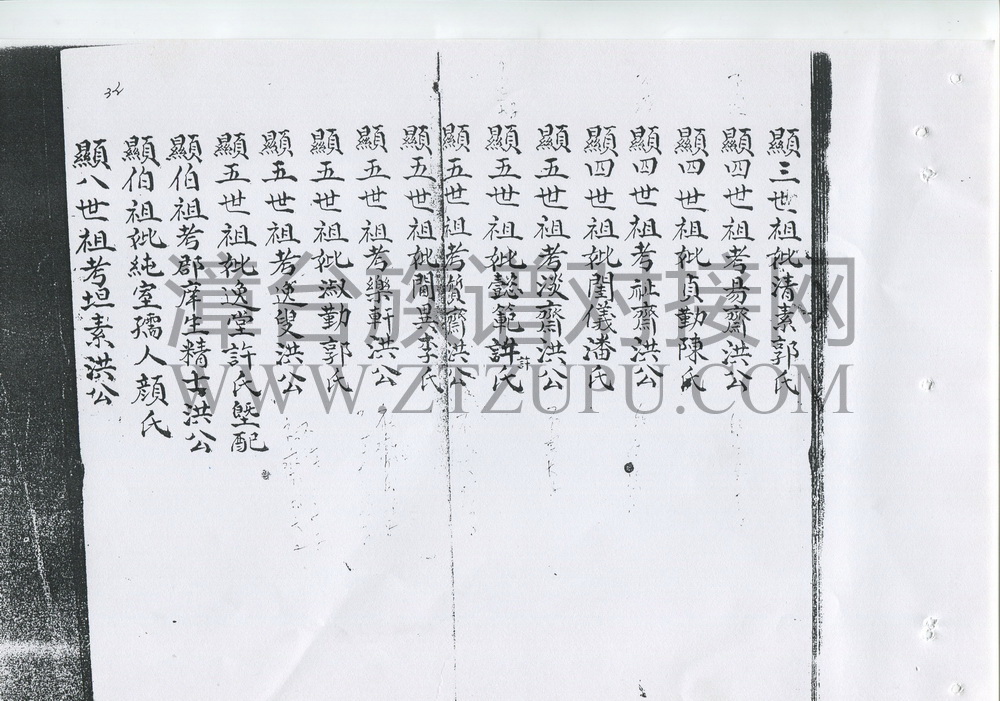 顯三世祖妣清素郭氏
顯四世祖考易齋洪公
顯四世祖妣貞勤陳氏
顯四世祖考祉齋洪公
顯四世祖妣閨儀潘氏
顯五世祖考逊齋洪公
顯五世祖妣懿範許氏
許
顯五世祖考質齋洪公
顯五世祖妣閫巽李氏
顯五世祖考樂軒洪公
顯五世祖妣淑勤郭氏
顯五世祖考逸叟洪公
顯五世祖妣逸堂許氏
顯伯祖考郡庠生精士洪公
顯伯祖妣純室孺人顏氏
顯八世祖考坦素洪公
34
漳台族谱对接网
WWW.ZTZUPU.COM